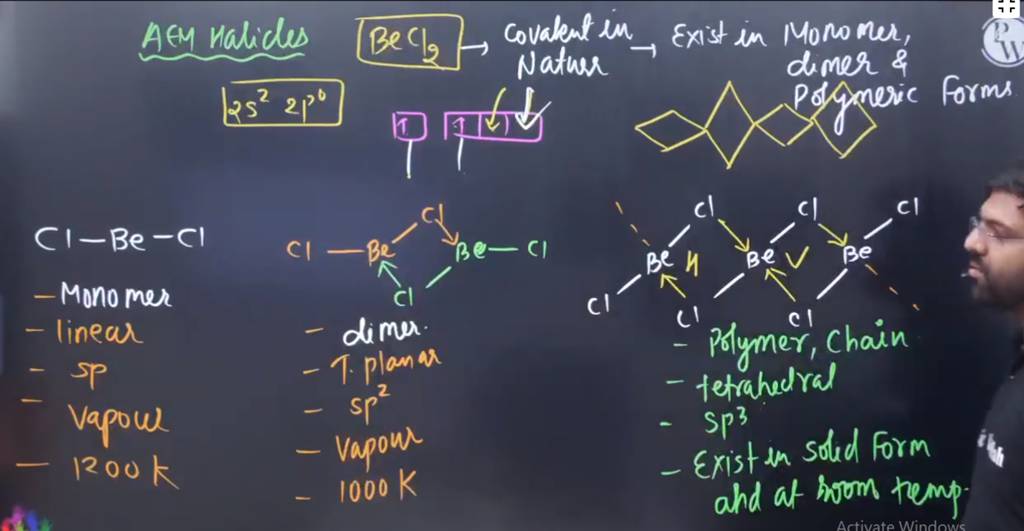 AEM Halides
BeCl2 → Covalent in Natuer → Exist in Monomer, dimer & Polymeric Forms
PW
2s² 2p⁰
Cl—Be—Cl
- Monomer
- linear
- sp
- Vapour
- 1200 K
Cl Be Cl Be Cl
Cl
- dimer.
- T. planar
- sp²
- Vapour
- 1000 K
Cl Cl Cl
Be Be Be
Cl Cl Cl
- Polymer, Chain
- tetrahedral
- sp3
- Exist in Solid Form
and at room temp.
Activate Windows